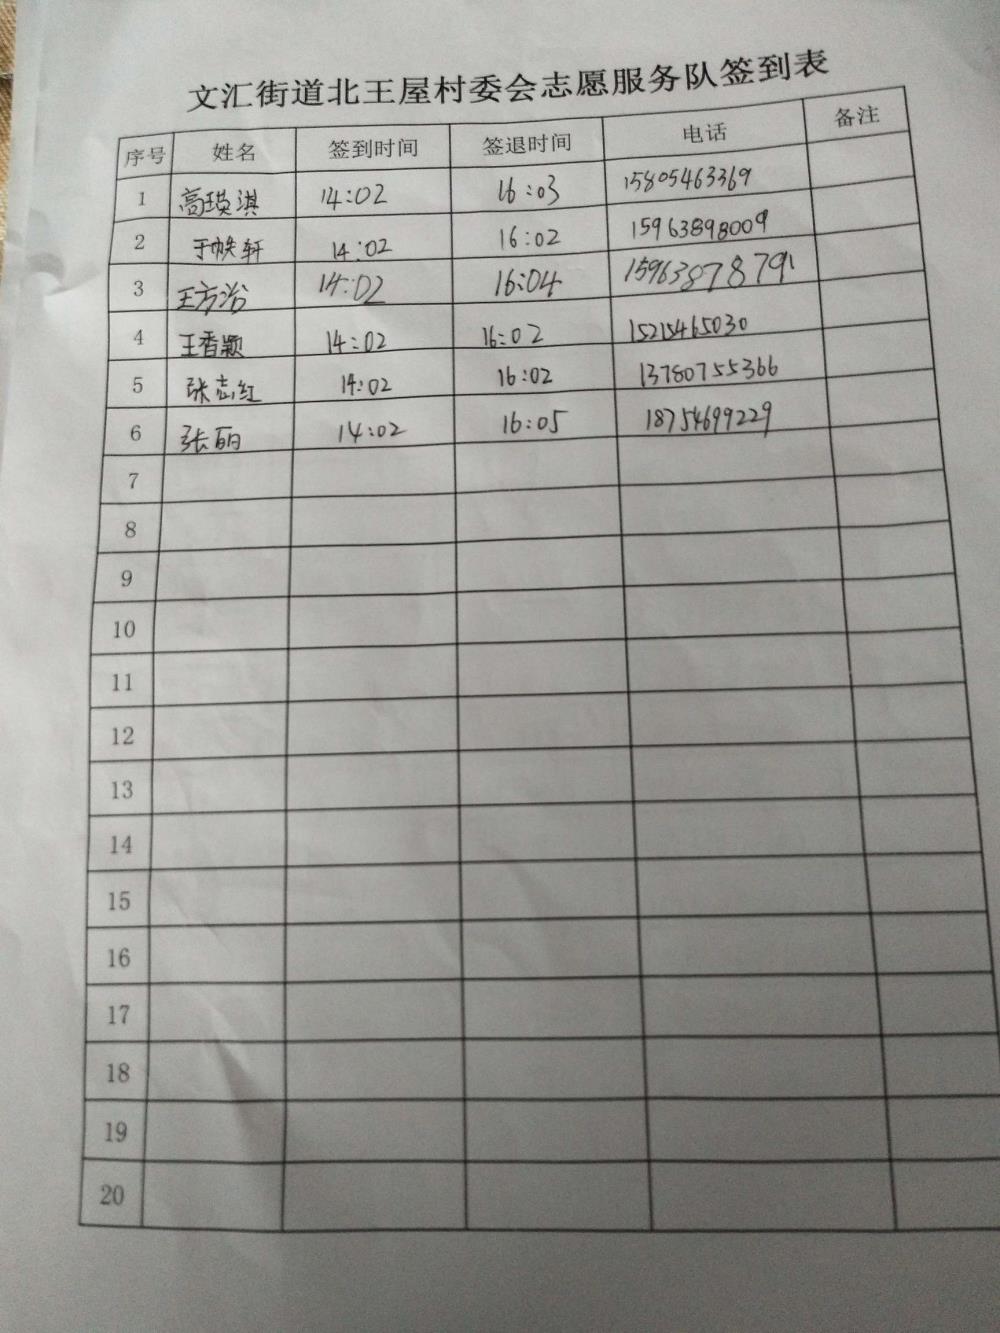 文汇街道北王屋村委会志愿服务队签到表
序号 姓名 签到时间 签退时间 电话 备注
1 高瑛淇 14:02 16:03 15805463369
2 于帙轩 14:02 16:02 15963898009
3 王方浴 14:02 16:04 15963878791
4 王香颖 14:02 16:02 15215465030
5 张志红 14:02 16:02 13780755366
6 张丽 14:02 16:05 18754699229
7
8
9
10
11
12
13
14
15
16
17
18
19
20